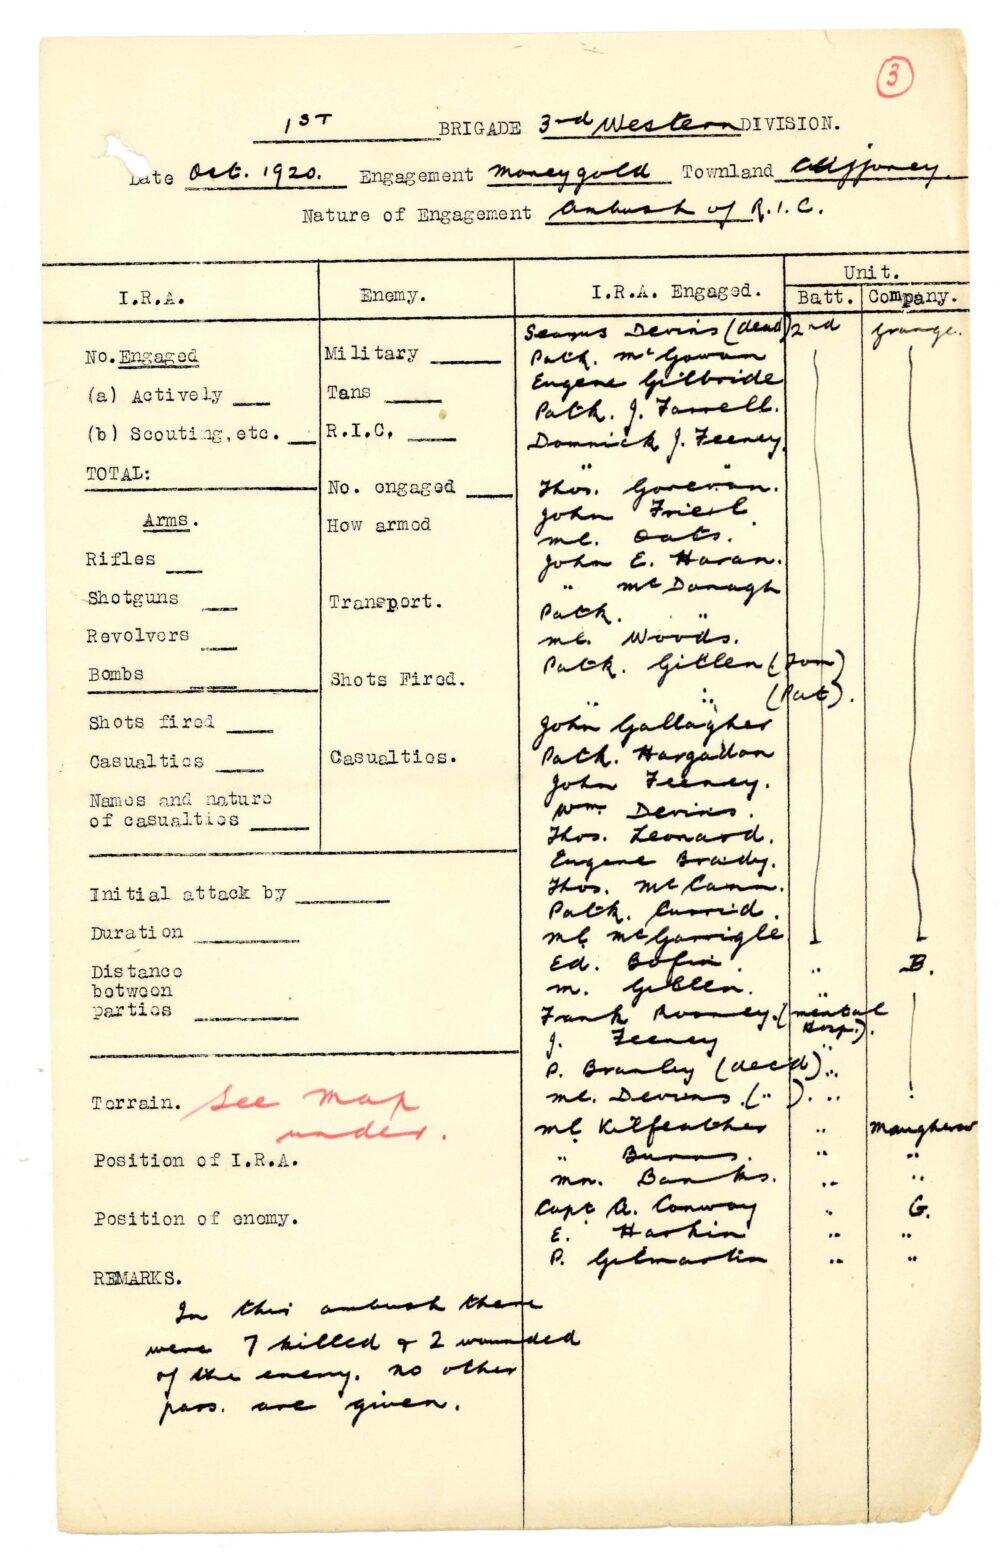 3
1ST BRIGADE 3rd Western DIVISION.
Date Oct. 1920. Engagement Moneygold Townland
Nature of Engagement Ambush of R.I.C.
I.R.A.
Enemy.
I.R.A. Engaged.
Unit.
Batt. Company.
No. Engaged
(a) Actively
(b) Scouting, etc.
TOTAL:
Arms.
Rifles
Shotguns
Revolvers
Bombs
Shots fired
Casualties
Names and nature
of casualties
Military
Tans
R.I.C.
No. engaged
How armed
Transport.
Shots Fired.
Casualties.
Initial attack by
Duration
Distance
between
parties
Terrain. See map
under.
Position of I.R.A.
Position of enemy.
REMARKS.
In this ambush there
were 7 killed & 2 wounded
of the enemy. no other
pars. are given.
Seamus Devins (dead) 2nd Grange.
Patk. McGowan
Eugene Gilbride
Patk. J. Farrell.
Domnick J. Feeney.
" "
Thos. Gorevan.
John Friel
ml. Oats.
John E. Haran.
" McDonagh
Patk. "
ml. Woods.
Patk. Gillen (Tom)
" " (Pat).
John Gallagher
Patk. Hargadon
John Feeney.
Wm. Devins.
Thos. Leonard.
Eugene Brady.
Thos. McCann.
Patk. Currid.
ml. McGarrigle
Ed. Bofin. " B.
m. Gillen. "
Frank Rooney. (mental
Hosp.).
J. Feeney "
P. Branley (dec'd) "
ml. Devins. ( " ). "
ml. Kilfeather "
" Burns. " "
mn. Banks. " "
Capt A. Conway " G.
E. Harkin " "
P. Gilmartin " "